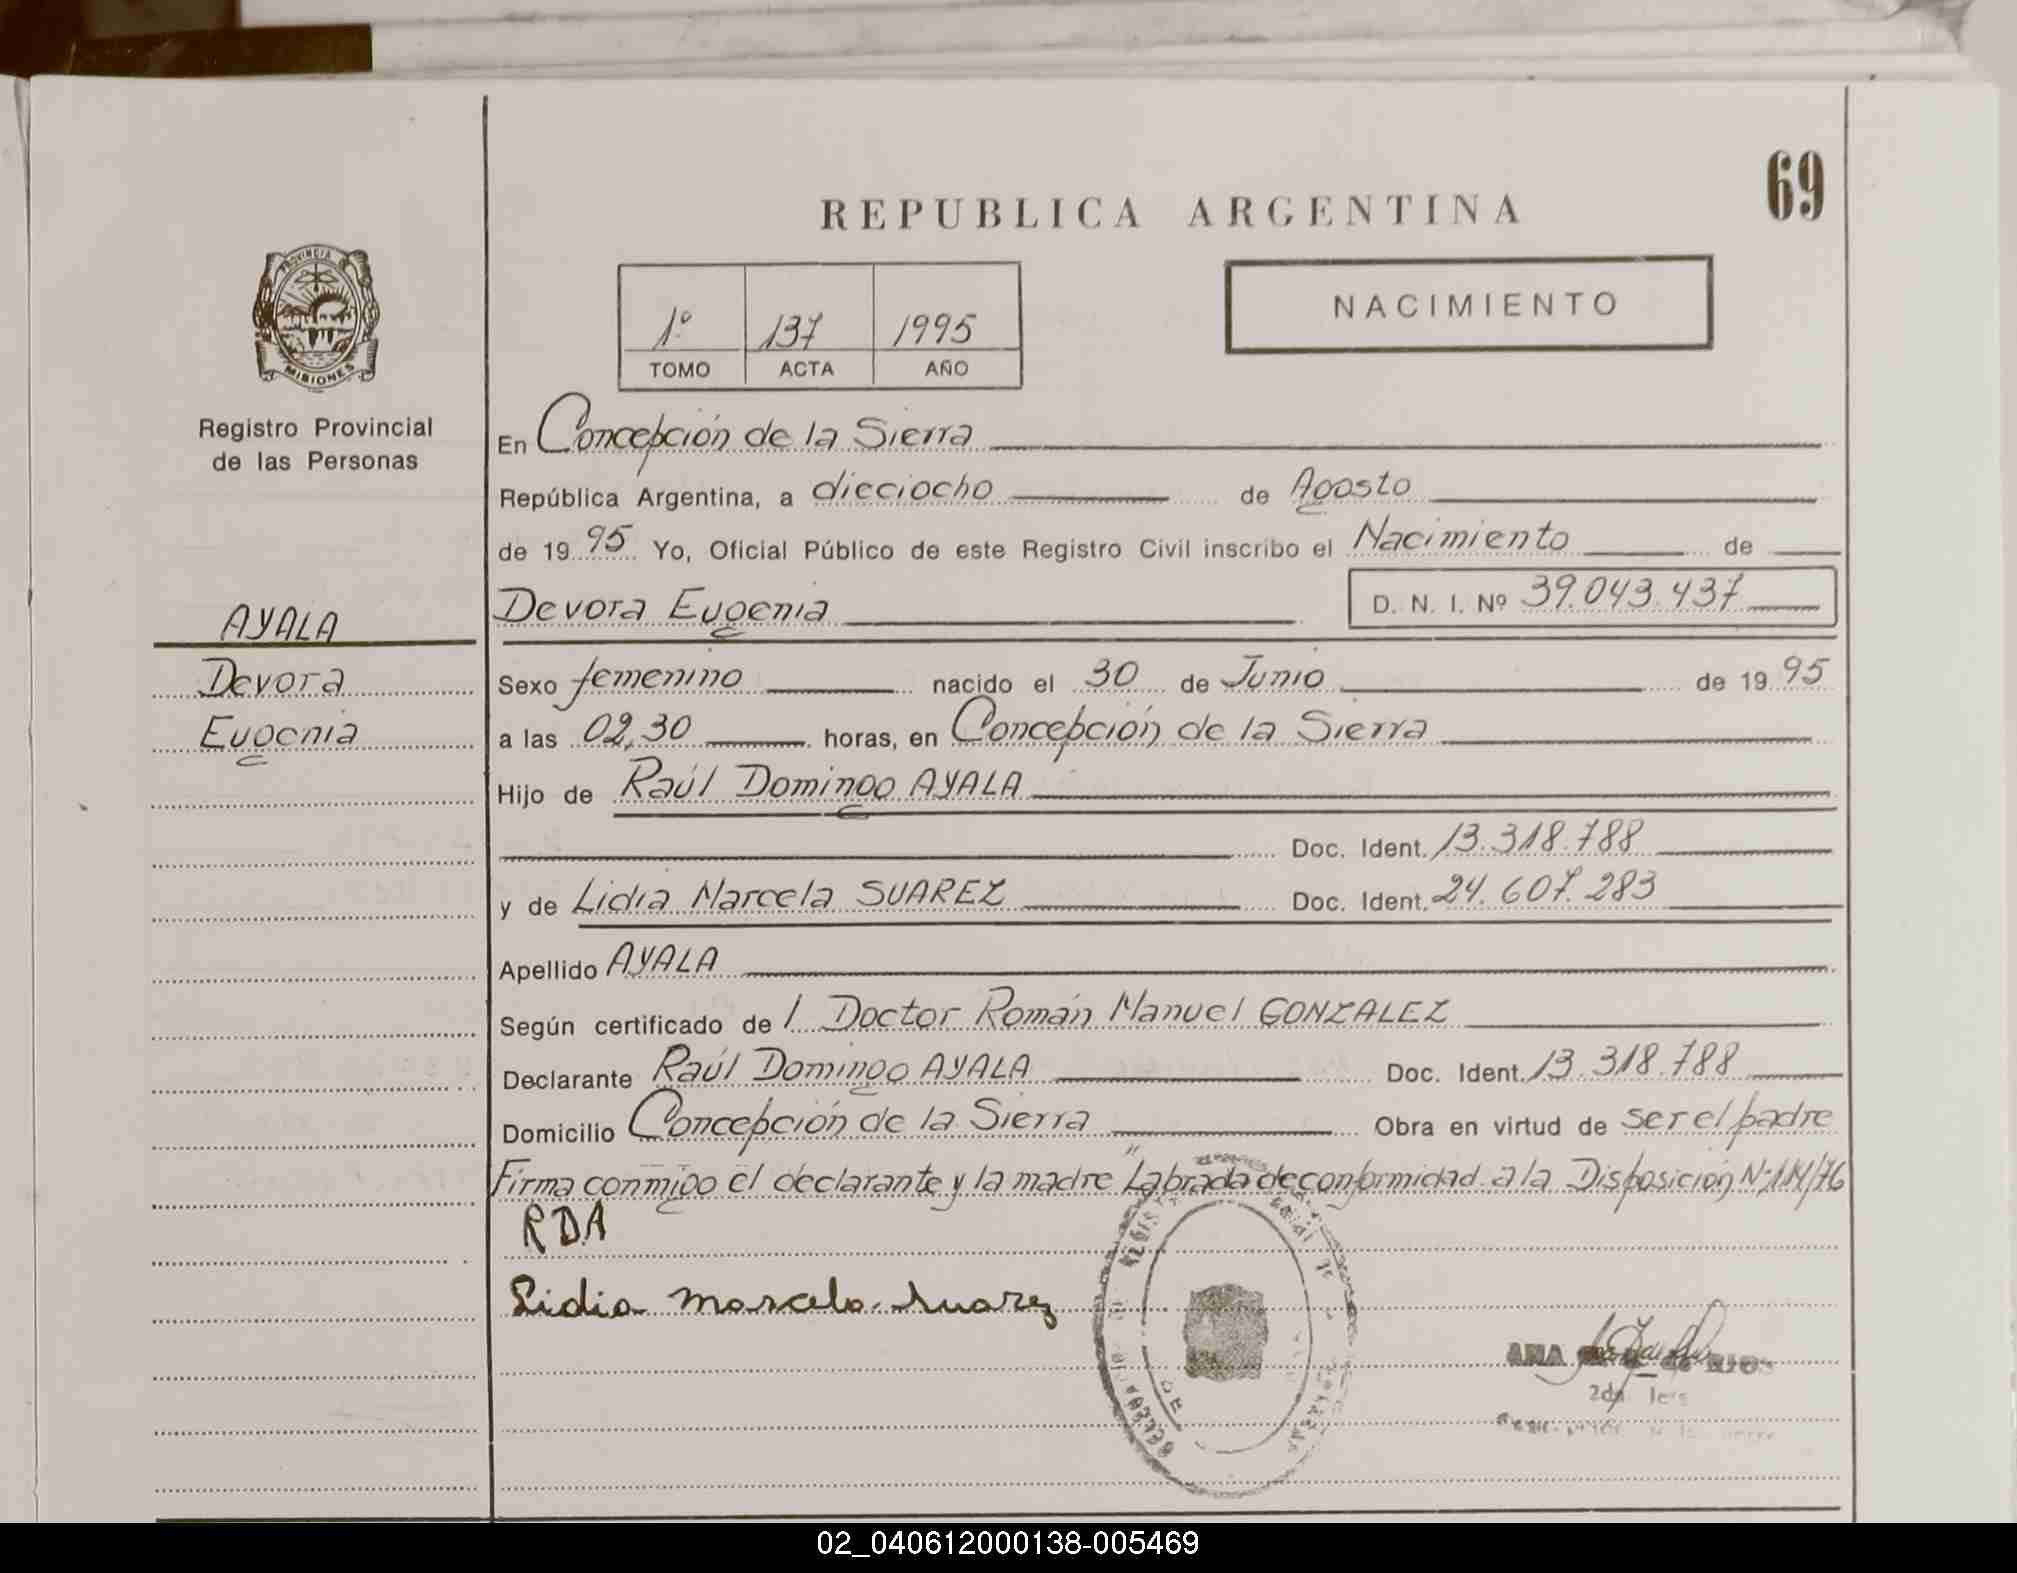 69
REPUBLICA ARGENTINA
PROVINCIA DE
MISIONES
Registro Provincial
de las Personas
1º 137 1995
TOMO ACTA AÑO
NACIMIENTO
En Concepción de la Sierra
República Argentina, a dieciocho de Agosto
de 1995 Yo, Oficial Público de este Registro Civil inscribo el Nacimiento de
AYALA
Devora Eugenia D. N. I. Nº 39.043.437
Devora
Sexo femenino nacido el 30 de Junio de 1995
Eugenia
a las 02,30 horas, en Concepción de la Sierra
Hijo de Raúl Domingo AYALA
Doc. Ident. 13.318.788
y de Lidia Marcela SUAREZ Doc. Ident. 24.607.283
Apellido AYALA
Según certificado del Doctor Román Manuel GONZALEZ
Declarante Raúl Domingo AYALA Doc. Ident. 13.318.788
Domicilio Concepción de la Sierra Obra en virtud de ser el padre
Firma conmigo el declarante y la madre "Labrada de conformidad a la Disposición Nº 114/76
RDA
Lidia Marcela Suarez
ANA de RIOS
02_040612000138-005469